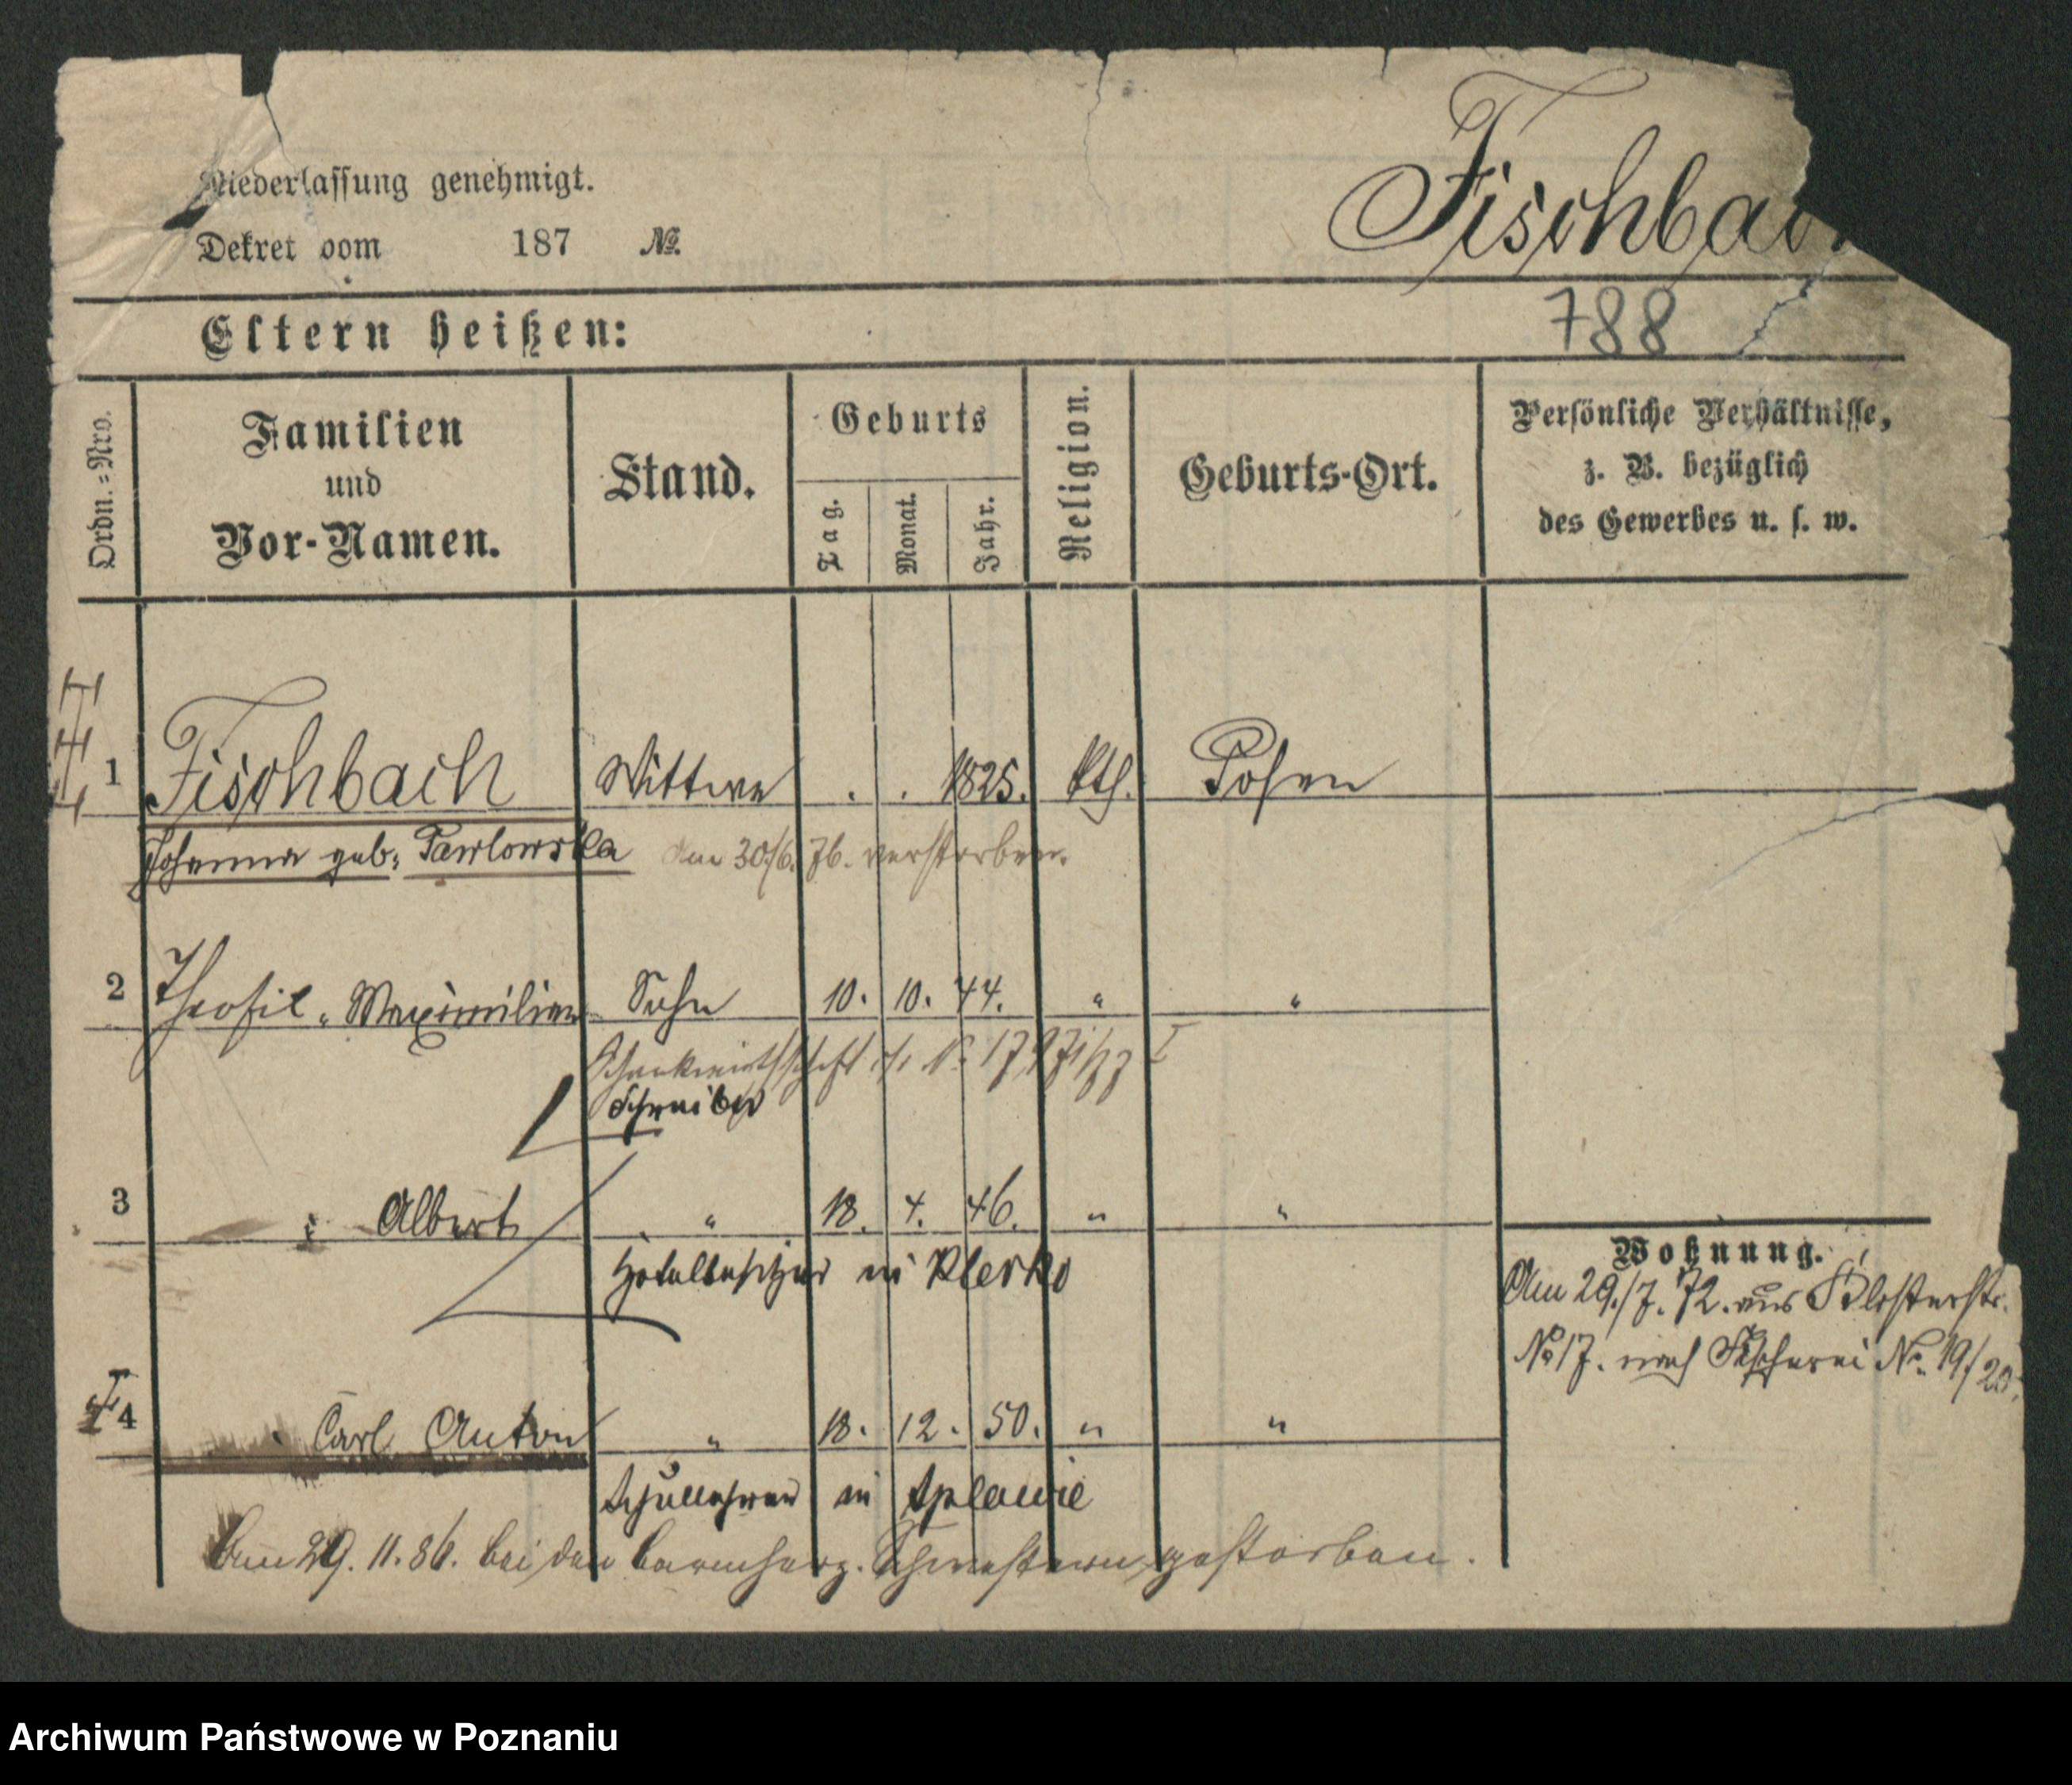 Niederlassung genehmigt.
Dekret vom 187 №.
Fischbach
Eltern heißen:
788
Ordn.=Nro.
Familien
und
Vor-Namen.
Stand.
Geburts
Tag.
Monat.
Jahr.
Religion.
Geburts-Ort.
Persönliche Verhältnisse,
z. B. bezüglich
des Gewerbes u. s. w.
1 Fischbach Wittwe . . 1825. kth. Posen
Johanna geb: Pawlowska am 30/6. 76. verstorben.
2 Theofil Maximilian Sohn 10. 10. 44. " "
Schankwirthschaft
Schreiber
3 Albert " 18. 4. 46. " "
Hotelbesitzer in Klecko
4 Carl Anton " 18. 12. 50. " "
Schullehrer in Splawie
Am 29. 11. 86. bei den barmherz. Schwestern gestorben.
Wohnung.
Am 29./7. 72. aus Klosterstr.
No 17. nach Fischerei No. 19/20.
Archiwum Państwowe w Poznaniu